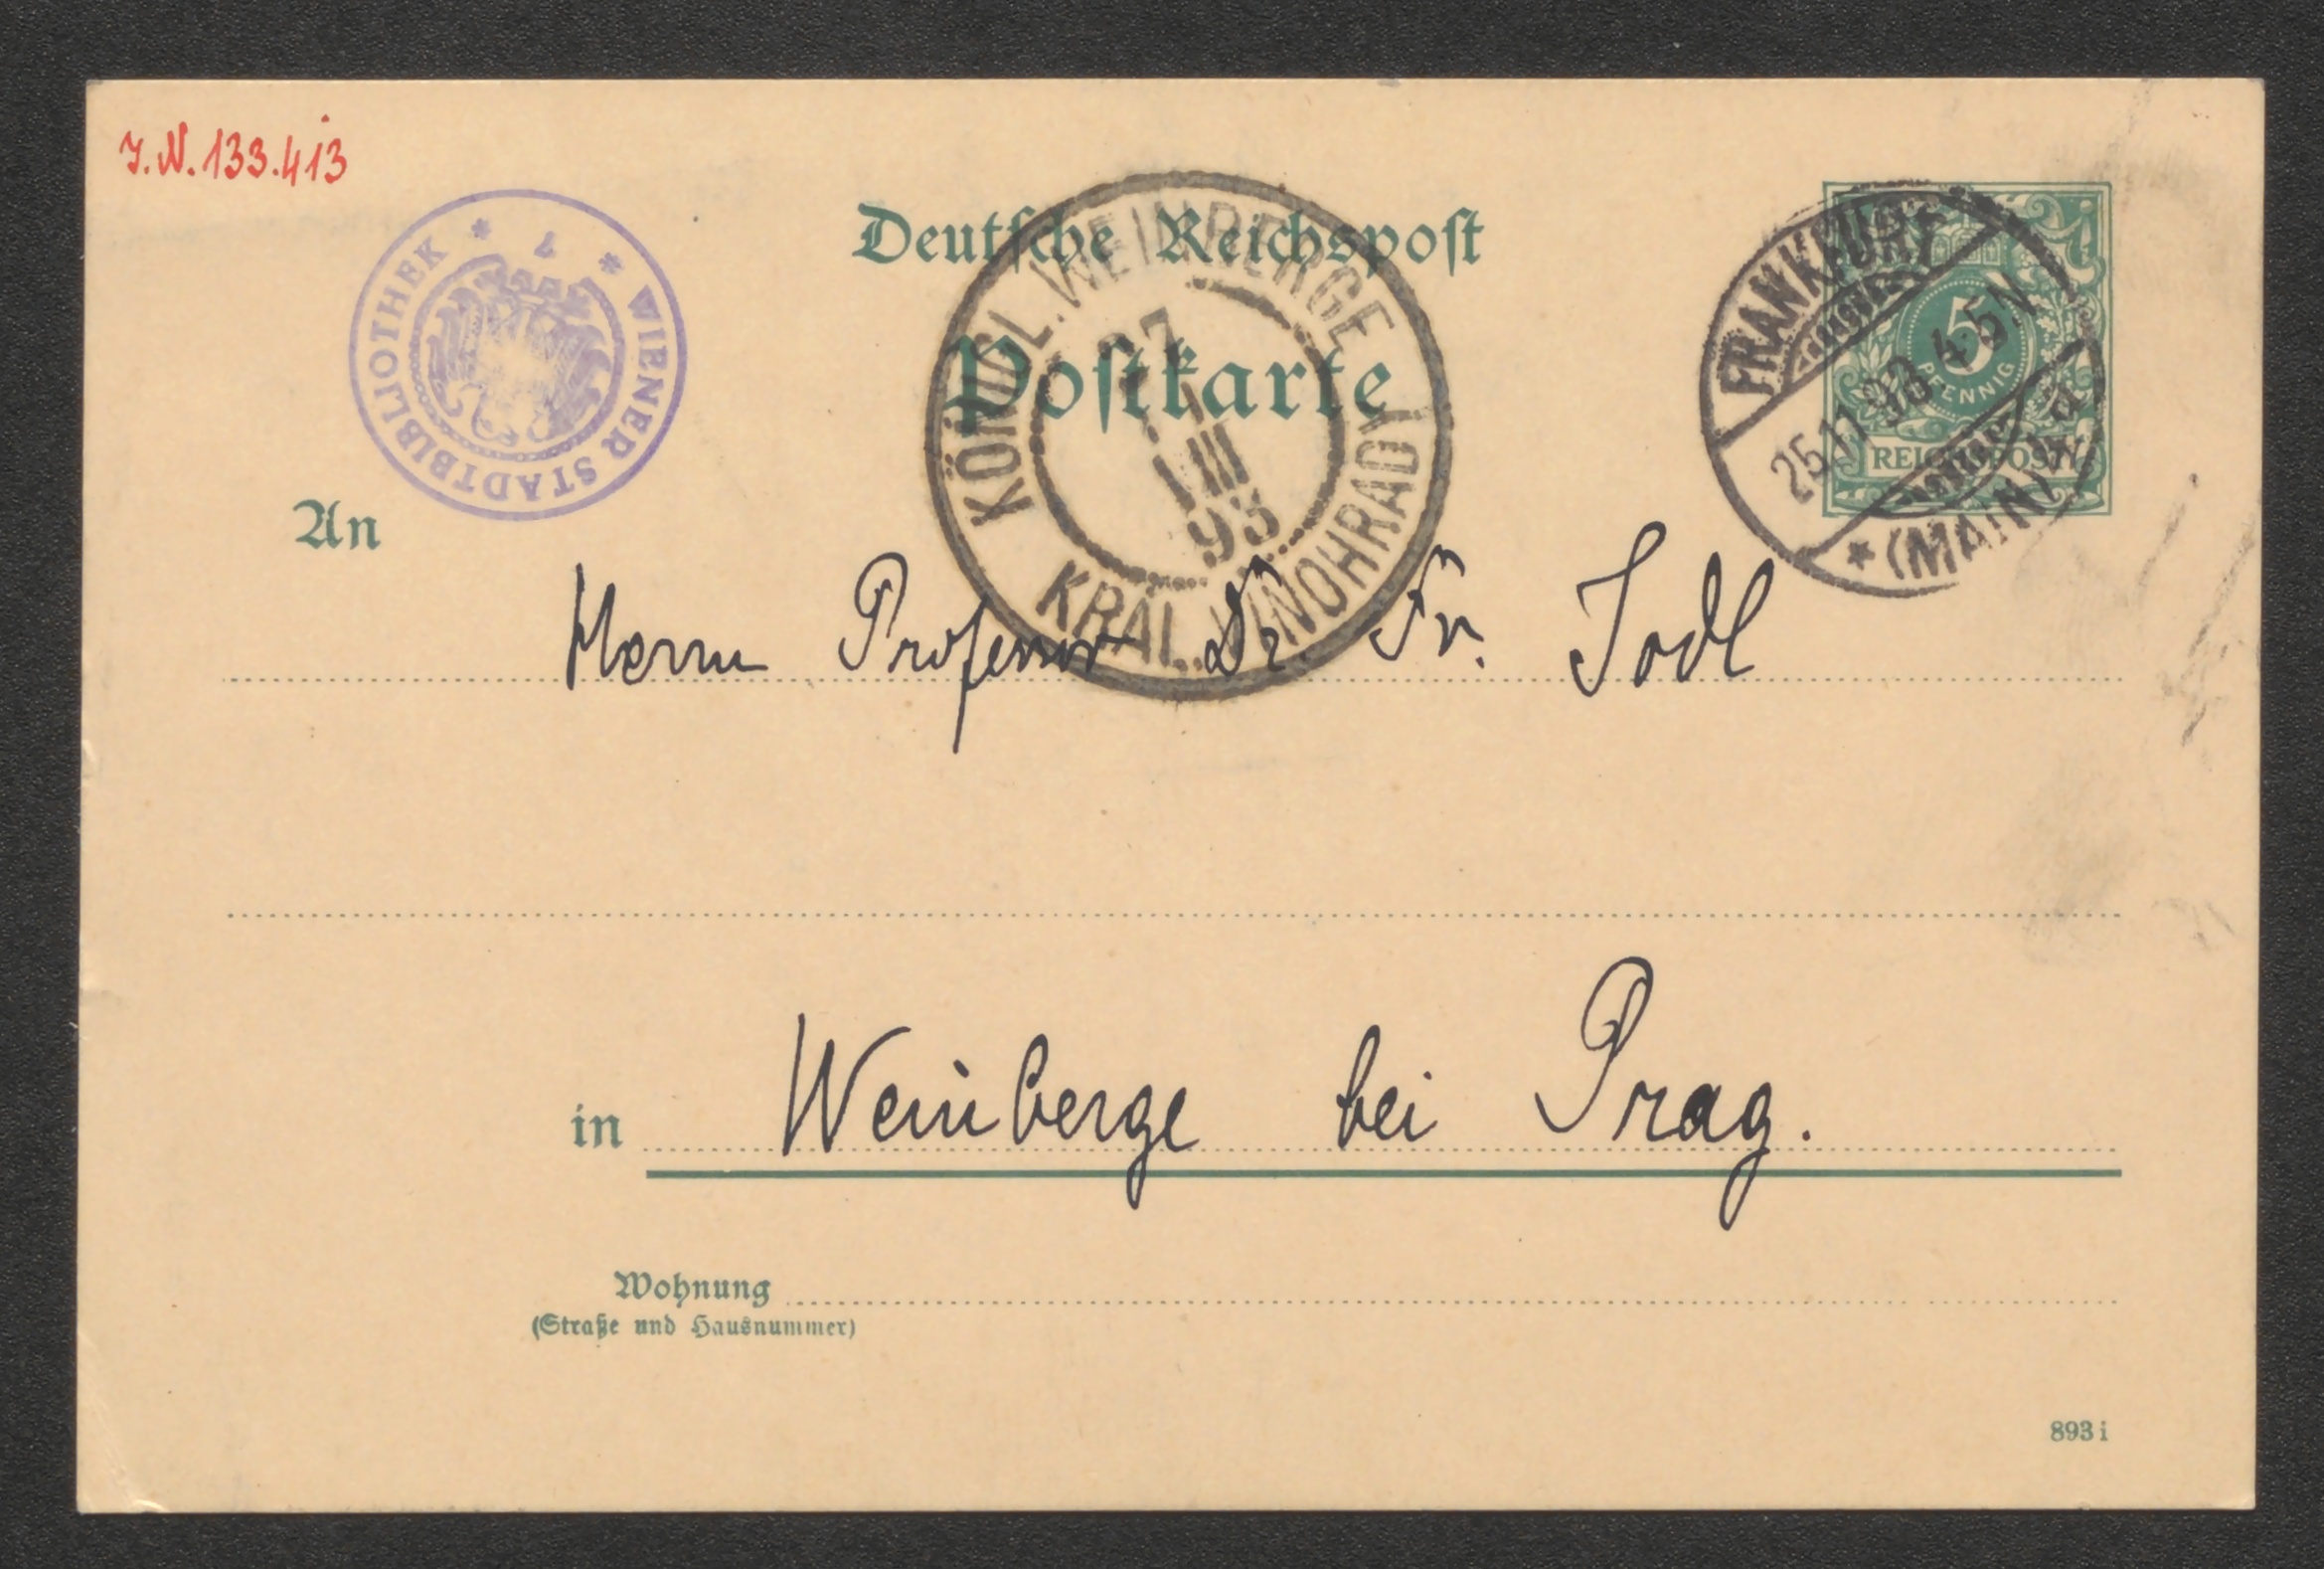 J.N. 133.413
* WIENER STADTBIBLIOTHEK *
Deutsche Reichspost
Postkarte
KÖNIGL. WEINBERGE
27
93
KRÁL. VINOHRADY
FRANKFURT
25.11.93. 4-5N.
* (MAIN)
5
PFENNIG
REICHSPOST
An
Herrn Professor Dr. Fr. Jodl
in Weinberge bei Prag.
Wohnung
(Straße und Hausnummer)
893 i